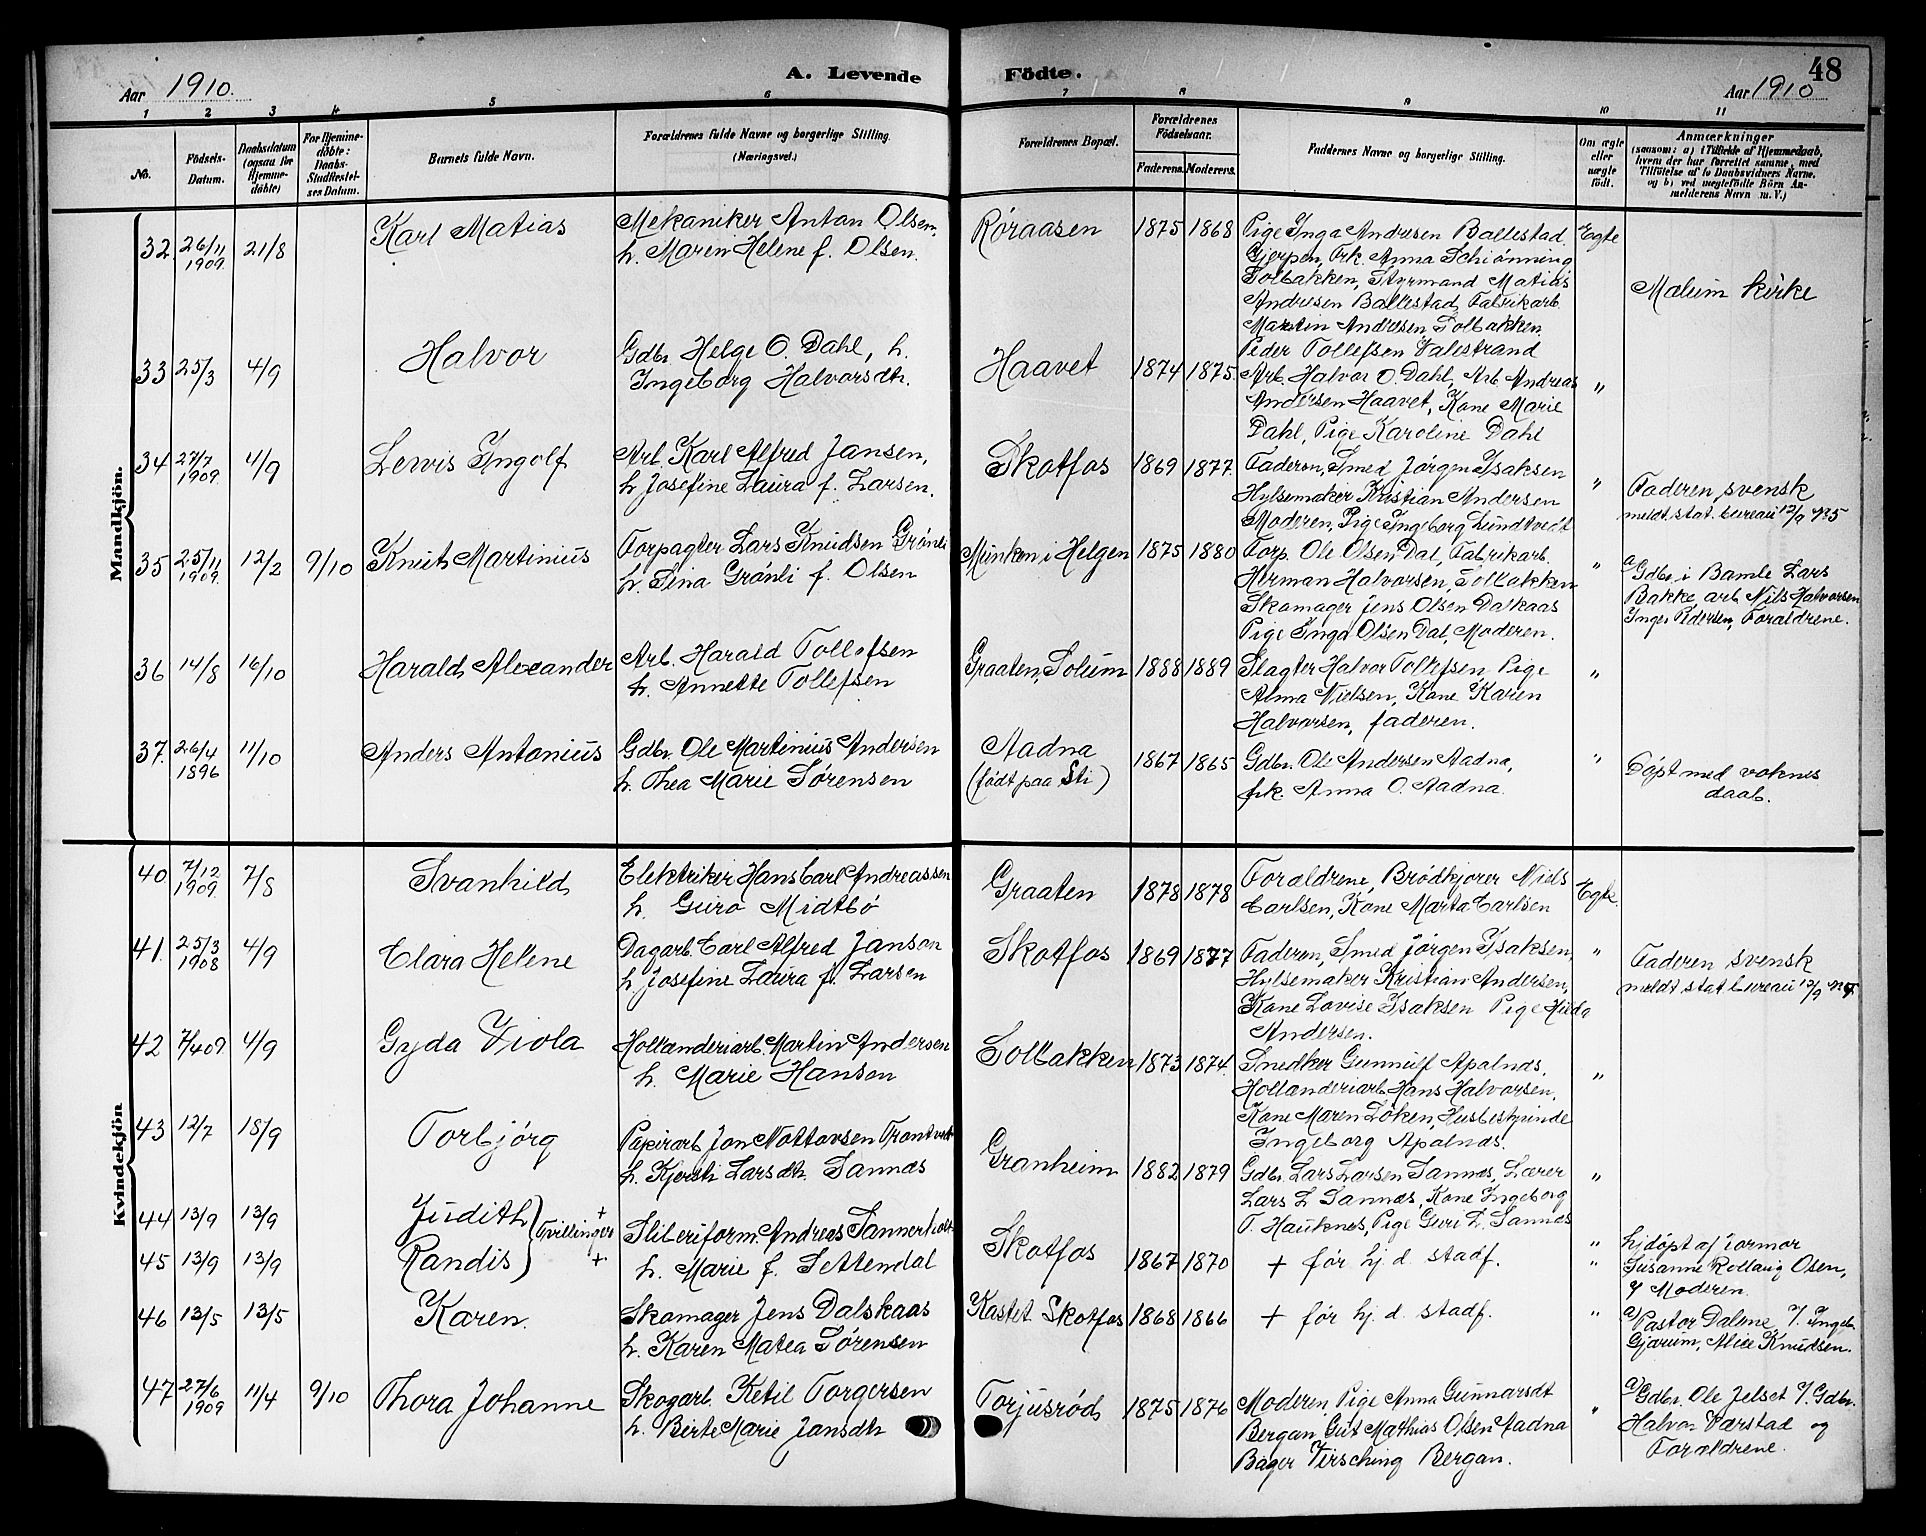 Aar 1910.
A. Levende Födte.
Aar 1910
48
1 2 3 4 5 6 7 8 9 10 11
No.
Födsels-Datum.
Daabsdatum (ogsaa för Hjemme-döbte)
For Hjemme-döbte: Daabs-Stadfæstel-ses Datum.
Barnets fulde Navn.
Forældrenes fulde Navne og borgerlige Stilling.
(Næringsvei.)
Forældrenes Bopæl.
Forældrenes Födselsaar.
Faderens. Moderens.
Faddernes Navne og borgerlige Stilling.
Om ægte eller uægte födt.
Anmærkninger
(saasom: a) i Tilfælde af Hjemmedaab, hvem der har forrettet samme, med Tilföielse af to Daabsvidners Navne. og b) ved uægtefödte Börn An-melderens Navn m. V.)
Mandkjön.
32 26/11 1909. 21/8 Karl Matias
Mekaniker Anton Olsen,
h. Maren Helene f. Olsen.
Røraasen 1875 1868
Pige Inga Andresen Ballestad
Gjerpen, Frk. Anna Schiønning
Solbakken, Styrmand Matias
Andresen Ballestad, Fabrikarb.
Martin Andresen Solbakken
Egte
Melum kirke
33 25/3 4/9 Halvor
Gdbr. Helge O. Dahl, h.
Ingeborg Halvorsdtr.
Haavet 1874 1875
Peder Tollefsen Valestrand
Arb. Halvor O. Dahl, Arb. Andreas
Andersen Haavet, Kone Marie
Dahl, Pige Karoline Dahl
"
34 27/7 1909. 4/9 Lewis Ingolf
Arb. Karl Alfred Jansen,
h. Josefine Laura f. Larsen.
Skotfos 1869 1877
Faderen, Smed Jørgen Isaksen
Hylsemaker Kristian Andersen
Moderen, Pige Ingeborg Lundtvedt
"
Faderen svensk
meldt stat. bureau 12/9 №5
35 25/11 1909. 12/2 9/10 Knut Martinius
Forpagter Lars Knudsen Grønli
h. Tina Grønli f. Olsen
Munken i Helgen 1875 1880
Forp. Ole Olsen Dal, Fabrikarb.
Herman Halvorsen, Solbakken
Skomager Jens Olsen Dalskaas
Pige Inga Olsen Dal, Moderen.
"
a) Gdbr. i Bamle Lars
Bakke, arb. Nils Halvorsen
Inger Pedersen, Forældrene.
36 14/8 16/10 Harald Alexander
Arb. Harald Tollefsen
h. Annette Tollefsen
Graaten, Solum 1888 1889
Slagter Halvor Tollefsen, Pige
Alma Nielsen, Kone Karen
Halvorsen, faderen.
"
37. 26/4 1896 11/10 Anders Antonius
Gdbr. Ole Martinius Andersen
h. Thea Marie Sørensen
Aadna
(født paa Sti)
1867 1865
Gdbr. Ole Andersen Aadna,
frk. Anna O. Aadna.
"
Døpt med voknes
daab.
Kvindekjön
40 7/12 1909. 7/8 Svanhild
Elektriker Hans Carl Andreassen
h. Guro Midtbø
Graaten 1878 1878
Forældrene, Brødkjører Niels
Carlsen, Kone Marta Carlsen
Egte.
41. 25/3 1908 4/9 Clara Helene
Dagarb. Carl Alfred Janson
h. Josefine Laura f. Larsen
Skotfos 1869 1877
Faderen, Smed Jørgen Isaksen,
Hylsemaker Kristian Andersen,
Kone Lovise Isaksen Pige Hilda
Andersen.
"
Faderen svensk
meldt stat. bureau 12/9
42 7/4 09. 4/9 Gyda Viola
Hollanderiarb. Martin Andersen
h. Marie Hansen
Solbakken 1873 1874
Snedker Gunnulf Apalnæs,
Hollanderiarb. Hans Halvorsen,
Kone Maren Løken, Husbestyrinde
Ingeborg Apalnæs.
"
43 12/7 18/9 Torbjörg
Papirarb. Jon Nottovsen Trontvedt
h. Kjersti Larsdtr. Sannæs
Granheim 1882 1879
Gdbr. Lars Larsen Sannæs, Lærer
Lars L. Sannæs, Kone Ingeborg
T. Hauknes, Pige Guri L. Sannæs
"
44 13/9 13/9 Judith +
45 13/9 13/9 Randis +
Tvillinger
Sliberiform. Andreas Sannerholt
h. Marie f. Settendal
Skotfos 1867 1870
+ før hj. d. stadf.
"
"
hjdøpt af jormor
Susanne Rollaug Osen,
& Moderen.
46 13/5 13/5 Karen.
Skomager Jens Dalskaas
h. Karen Matea Sørensen
Kastet Skotfos 1868 1866
+ før hj. d. stadf.
"
a) Pastor Dalene V. Ingeb.
Gjærum, Alice Knudsen.
47 27/6 1909 11/4 9/10 Thora Johanne
Skogarb. Ketil Torgersen
h. Birte Marie Jansdtr
Torjusrød 1875 1876
Moderen, Pige Anna Gunnarsdt
Bergan, Gut Mathias Olsen Aadna
Bager Virsching Bergan.
"
a) Gdbr. Ole Jelset V. Gdbr.
HalvorVærstad og
Forældrene.